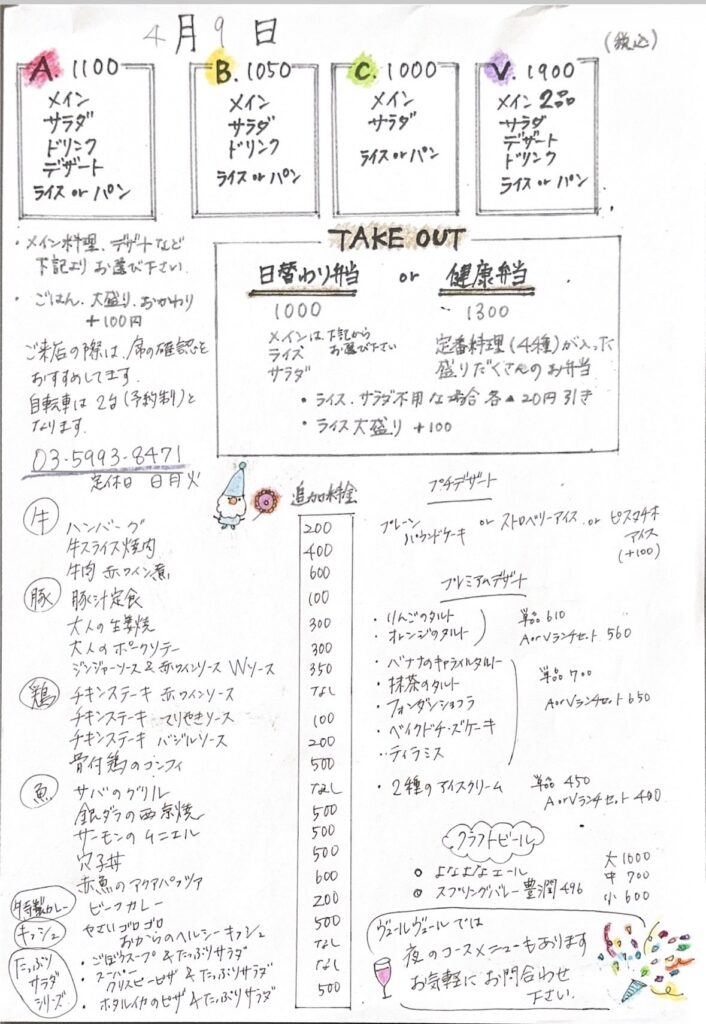 4月9日
(税込)
A. 1100
メイン
サラダ
ドリンク
デザート
ライス or パン
B. 1050
メイン
サラダ
ドリンク
ライス or パン
C. 1000
メイン
サラダ
ライス or パン
V. 1900
メイン 2品
サラダ
デザート
ドリンク
ライス or パン
・メイン料理、デザートなど
下記より お選び下さい
・ごはん、大盛り、おかわり
+100円
ご来店の際は、席の確認を
おすすめしてます。
自転車は 2台(予約制)と
なります。
03-5993-8471
定休日 日月火
TAKE OUT
日替わり弁当 or 健康弁当
1000
メインは、下記から
お選び下さい
ライス
サラダ
1300
定番料理(4種)が入った
盛りだくさんのお弁当
・ライス、サラダ不用な場合 各▲20円引き
・ライス大盛り +100
追加料金
牛
ハンバーグ 200
牛スライス焼肉 400
牛肉 赤ワイン煮 600
豚
豚汁定食 100
大人の生姜焼 300
大人のポークソテー 300
ジンジャーソース&赤ワインソース Wソース 350
鶏
チキンステーキ 赤ワインソース なし
チキンステーキ てりやきソース 100
チキンステーキ バジルソース 200
骨付鶏のコンフィ 500
魚
サバのグリル なし
銀ダラの西京焼 500
サーモンのムニエル 500
穴子丼 500
赤魚のアクアパッツァ 600
特製カレー
ビーフカレー 200
やさいゴロゴロ 500
キッシュ
おからのヘルシーキッシュ なし
たっぷり
サラダ
シリーズ
・ごぼうスープ&たっぷりサラダ なし
・スーパー
クリスピーピザ&たっぷりサラダ
・ホタルイカのピザ&たっぷりサラダ 500
プチデザート
プレーン
パウンドケーキ or ストロベリーアイス or ピスタチオ
アイス
(+100)
プレミアムデザート
・りんごのタルト
・オレンジのタルト
単品 610
AorVランチセット 560
・バナナのキャラメルタルト
・抹茶のタルト
・フォンダンショコラ
・ベイクドチーズケーキ
・ティラミス
単品 700
AorVランチセット 650
・2種のアイスクリーム 単品 450
AorVランチセット 400
クラフトビール
よなよなエール
スプリングバレー 豊潤 496
大 1000
中 700
小 600
ヴュールヴュールでは
夜のコースメニューもあります
お気軽に お問合わせ
下さい。